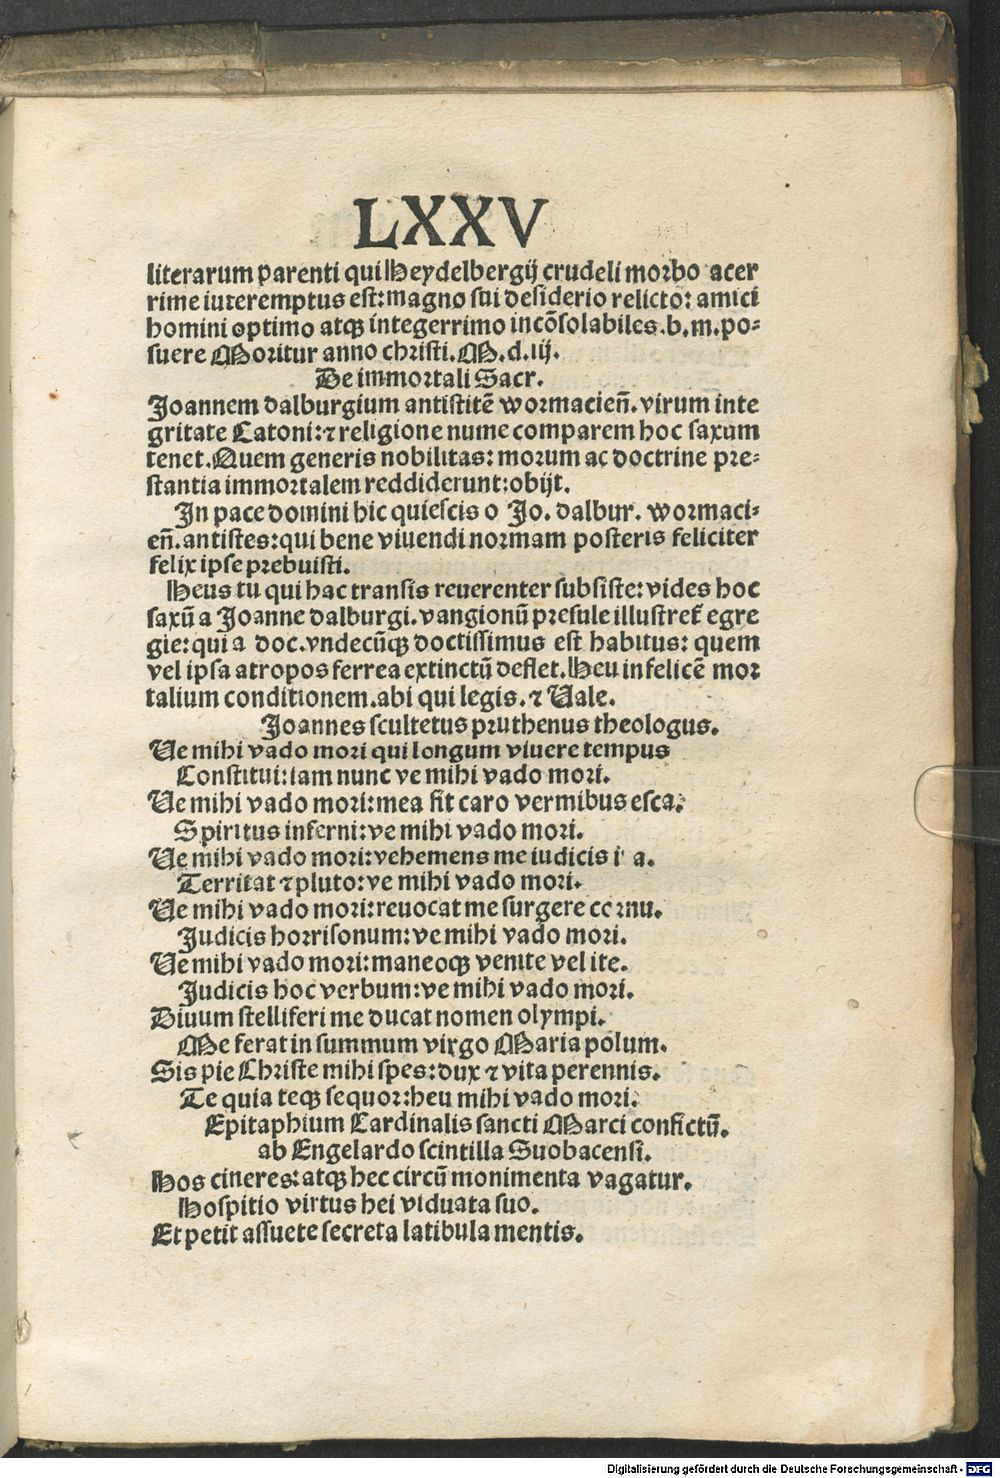 LXXV
literarum parenti qui Heydelbergij crudeli morbo acer
rime iuteremptus est: magno sui desiderio relicto: amici
homini optimo atqꝫ integerrimo incōsolabiles. b. m. po⸗
suere Moritur anno christi. M. d. iij.
De immortali Sacr.
Joannem dalburgium antistitē wormacieñ. virum inte
gritate Catoni: ⁊ religione nume comparem hoc saxum
tenet. Quem generis nobilitas: morum ac doctrine pre⸗
stantia immortalem reddiderunt: obijt.
In pace domini hic quiescis o Jo. dalbur. wormaci⸗
eñ. antistes: qui bene viuendi normam posteris feliciter
felix ipse prebuisti.
Heus tu qui hac transis reuerenter subsiste: vides hoc
saxū a Joanne dalburgi. vangionū presule illustret̄ egre
gie: qui a doc. vndecūqꝫ doctissimus est habitus: quem
vel ipsa atropos ferrea extinctū deflet. Heu infelicē mor
talium conditionem. abi qui legis. ⁊ Uale.
Joannes scultetus pruthenus theologus.
Ue mihi vado mori qui longum viuere tempus
Constitui: iam nunc ve mihi vado mori.
Ue mihi vado mori: mea fit caro vermibus esca.
Spiritus inferni: ve mihi vado mori.
Ue mihi vado mori: vehemens me iudicis i a.
Territat ⁊ pluto: ve mihi vado mori.
Ue mihi vado mori: reuocat me surgere cornu.
Judicis horrisonum: ve mihi vado mori.
Ue mihi vado mori: maneoqꝫ venite vel ite.
Judicis hoc verbum: ve mihi vado mori.
Diuum stelliferi me ducat nomen olympi.
Me ferat in summum virgo Maria polum.
Sis pie Christe mihi spes: dux ⁊ vita perennis.
Te quia teqꝫ sequor: heu mihi vado mori.
Epitaphium Cardinalis sancti Marci confictū.
ab Engelardo scintilla Suobacensi.
Hos cineres: atqꝫ hec circū monimenta vagatur.
Hospitio virtus hei viduata suo.
Et petit assuete secreta latibula mentis.
Digitalisierung gefördert durch die Deutsche Forschungsgemeinschaft - DFG